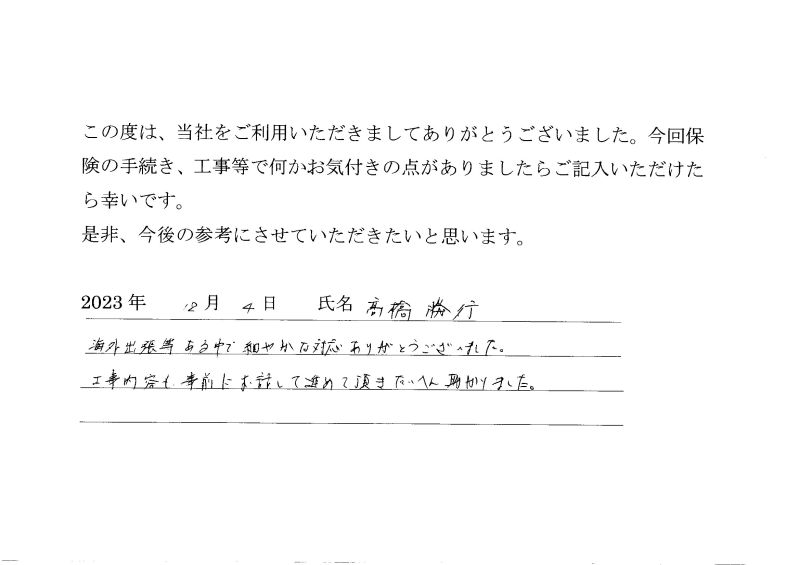 この度は、当社をご利用いただきましてありがとうございました。今回保
険の手続き、工事等で何かお気付きの点がありましたらご記入いただけた
ら幸いです。
是非、今後の参考にさせていただきたいと思います。
2023 年 12 月 4 日 氏名 高橋 勝行
海外出張等ある中で細やかな対応ありがとうございました。
工事内容も事前にお話して進めて頂きたいへん助かりました。